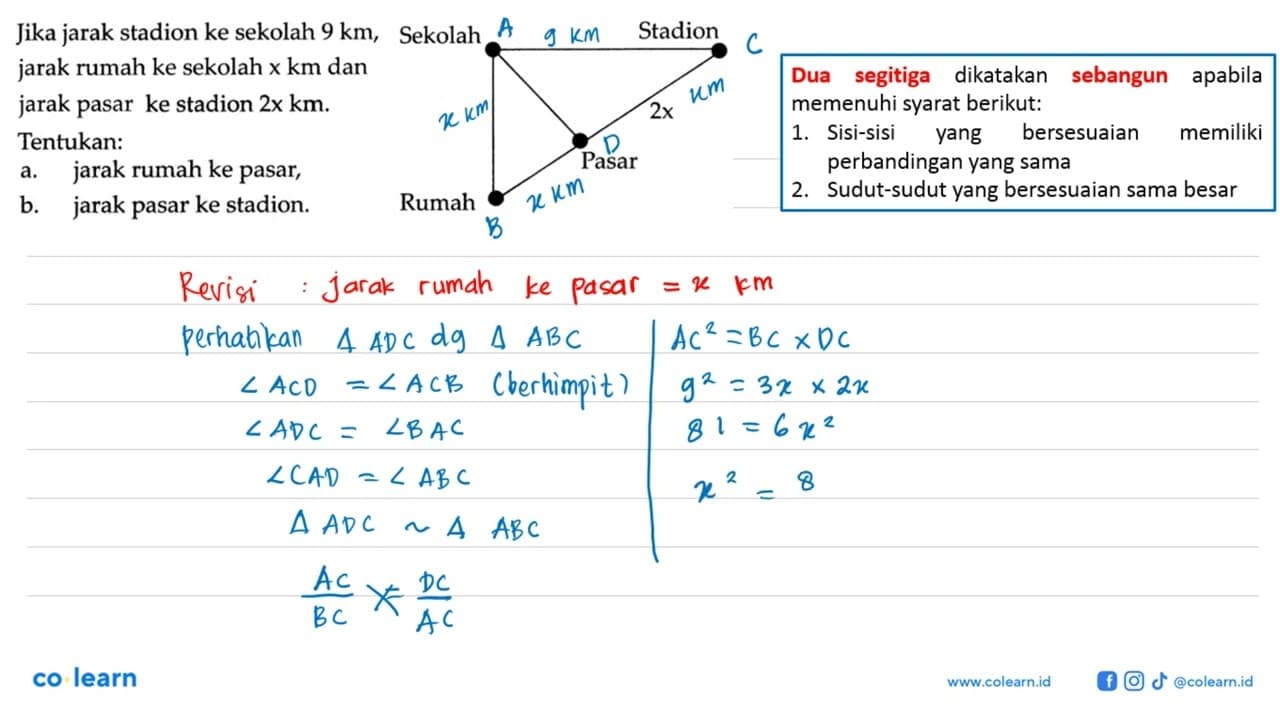 Jika jarak stadion ke sekolah 9 km,
jarak rumah ke sekolah x km dan
jarak pasar ke stadion 2x km.
Tentukan:
a. jarak rumah ke pasar,
b. jarak pasar ke stadion.
Sekolah A 9 km Stadion C
x km
2x km
D
Pasar
Rumah x km
B
Dua segitiga dikatakan sebangun apabila
memenuhi syarat berikut:
1. Sisi-sisi yang bersesuaian memiliki
perbandingan yang sama
2. Sudut-sudut yang bersesuaian sama besar
Revisi : jarak rumah ke pasar = x km
perhatikan Δ ADC dg Δ ABC
∠ ACD = ∠ ACB (berhimpit)
∠ ADC = ∠ BAC
∠CAD = ∠ ABC
Δ ADC ~ Δ ABC
AC/BC = DC/AC
AC² = BC × DC
9² = 3x × 2x
81 = 6x²
x² = 8
co learn
www.colearn.id
@colearn.id